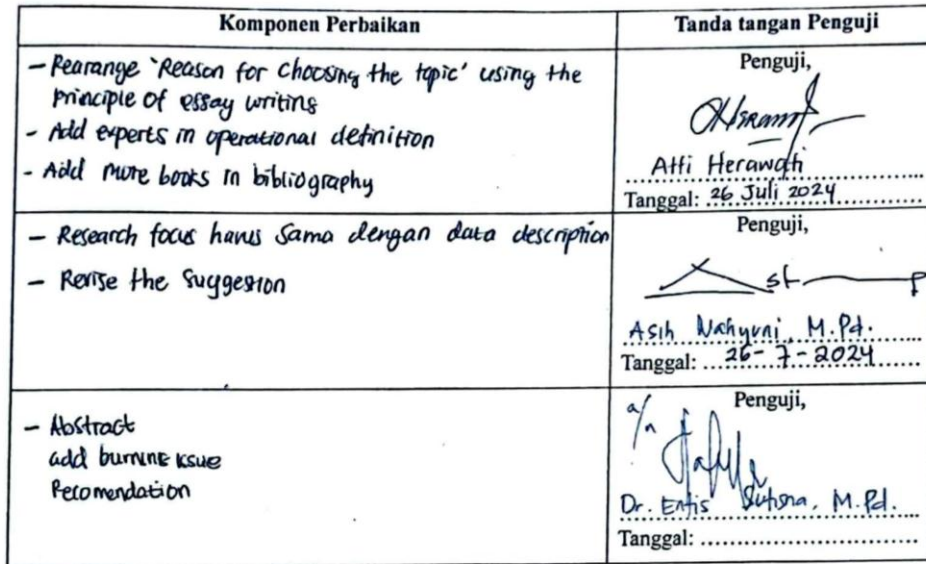 Komponen Perbaikan
Tanda tangan Penguji
- Rearange 'Reason for Choosing the topic' using the
principle of essay writing
- Add experts in operational definition
- Add more books in bibliography
Penguji,
Atti Herawati
Tanggal: 26 Juli 2024
- Research focus harus sama dengan data description
- Revise the suggestion
Penguji,
Asih Wahyuni, M.Pd.
Tanggal: 26-7-2024
- Abstract
add burning issue
Recomendation
Penguji,
a/n
Dr. Entis Sutisna, M.Pd.
Tanggal: